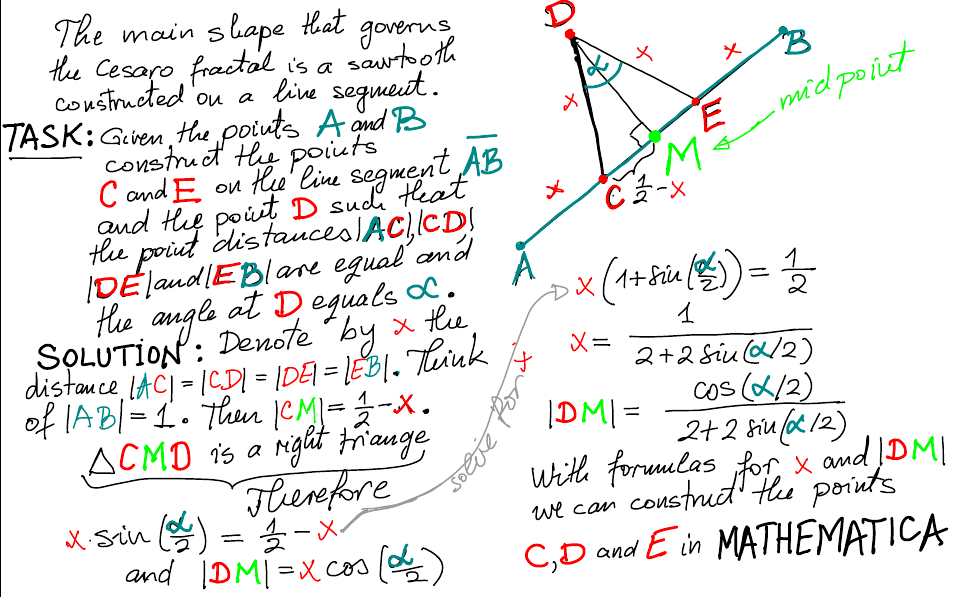 The main shape that governs
the Cesaro fractal is a sawtooth
constructed on a line segment.
TASK: Given the points A and B
construct the points
C and E on the line segment \overline{AB}
and the point D such that
the point distances |AC|,|CD|,
|DE| and |EB| are equal and
the angle at D equals α.
SOLUTION: Denote by x the
distance |AC| = |CD| = |DE| = |EB|. Think
of |AB| = 1. Then |CM| = 1/2 - x.
△CMD is a right triange
Therefore
x · sin(α/2) = 1/2 - x
and |DM| = x cos(α/2)
solve for x
D
α
x
x
x
B
E
midpoint
M
C 1/2 - x
x
A
x(1 + sin(α/2)) = 1/2
x = 1/(2 + 2 sin(α/2))
|DM| = cos(α/2)/(2 + 2 sin(α/2))
With formulas for x and |DM|
we can construct the points
C, D and E in MATHEMATICA